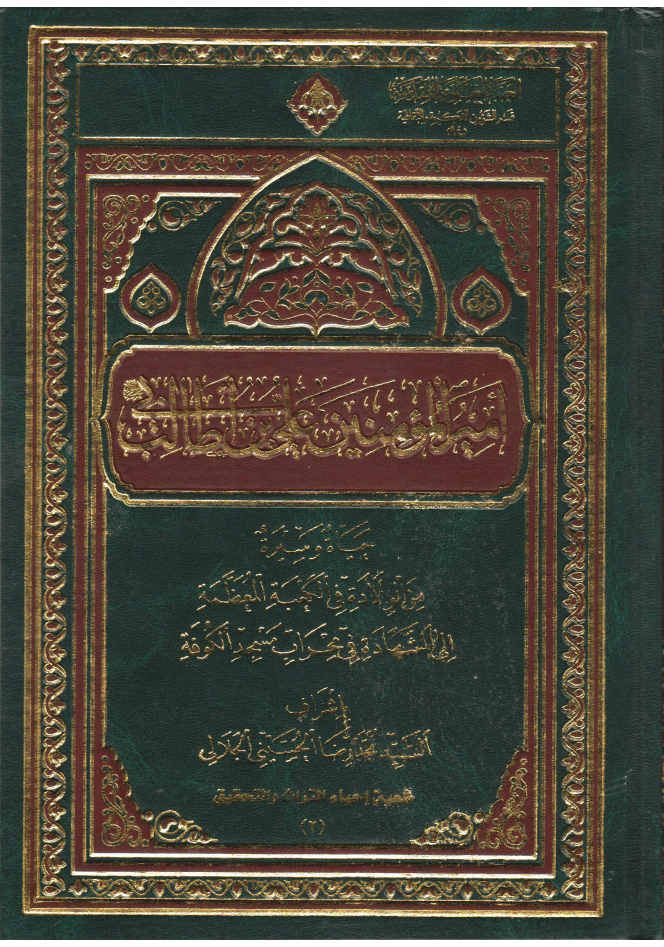 العتبة العباسية المقدسة
قسم الشؤون الفكرية والثقافية
أمير المؤمنين علي بن أبي طالب
حياة وسيرة
من الولادة في الكعبة المعظمة
إلى الشهادة في محراب مسجد الكوفة
بإشراف
السيد محمد رضا الحسيني الجلالي
شعبة إحياء التراث والتحقيق
(٢)